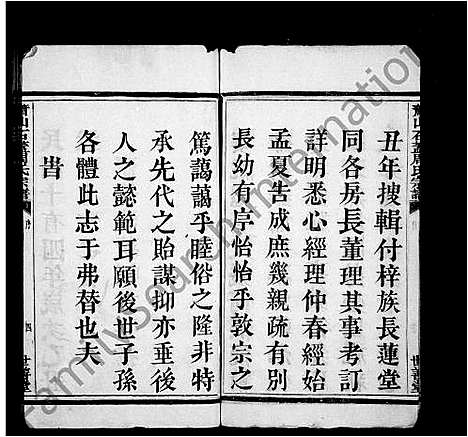 丑年搜輯付梓族長蓮堂
同各房長董理其事考訂
詳明悉心經理仲春經始
孟夏告成庶幾親疏有別
長幼有序怡怡乎敦宗之
篤藹藹乎睦俗之隆非特
承先代之貽謀抑亦垂後
人之懿範耳願後世子孫
各體此志于弗替也夫
旹
蕭山 周氏宗譜
四
世善堂
FamilySearch International